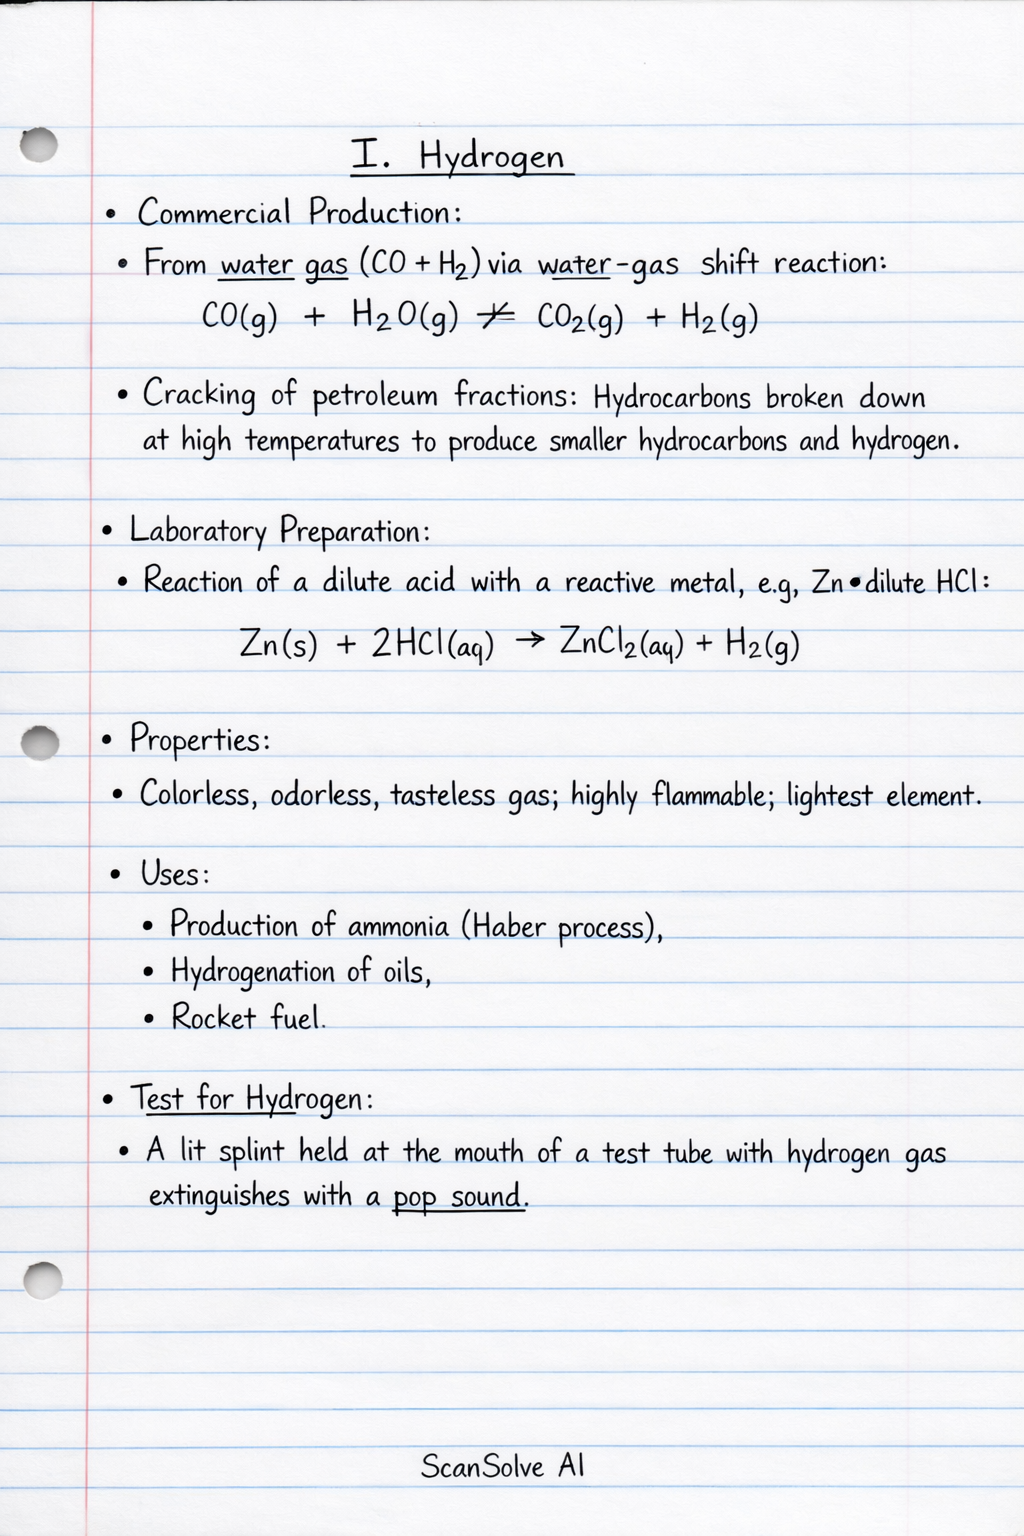 I. Hydrogen
• Commercial Production:
• From water gas (CO + H₂) via water-gas shift reaction:
CO(g) + H₂O(g) ≠ CO₂(g) + H₂(g)
• Cracking of petroleum fractions: Hydrocarbons broken down
at high temperatures to produce smaller hydrocarbons and hydrogen.
• Laboratory Preparation:
• Reaction of a dilute acid with a reactive metal, e.g, Zn•dilute HCl:
Zn(s) + 2HCl(aq) → ZnCl₂(aq) + H₂(g)
• Properties:
• Colorless, odorless, tasteless gas; highly flammable; lightest element.
• Uses:
• Production of ammonia (Haber process),
• Hydrogenation of oils,
• Rocket fuel.
• Test for Hydrogen:
• A lit splint held at the mouth of a test tube with hydrogen gas
extinguishes with a pop sound.
ScanSolve AI